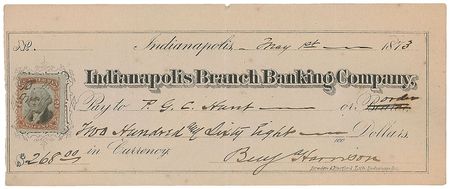 No. Indianapolis, May 1st 1873
Indianapolis Branch Banking Company,
Pay to P. G. C. Hunt or order Bearer
Two Hundred & Sixty Eight 100 Dollars
$268.00 in Currency. Benj Harrison